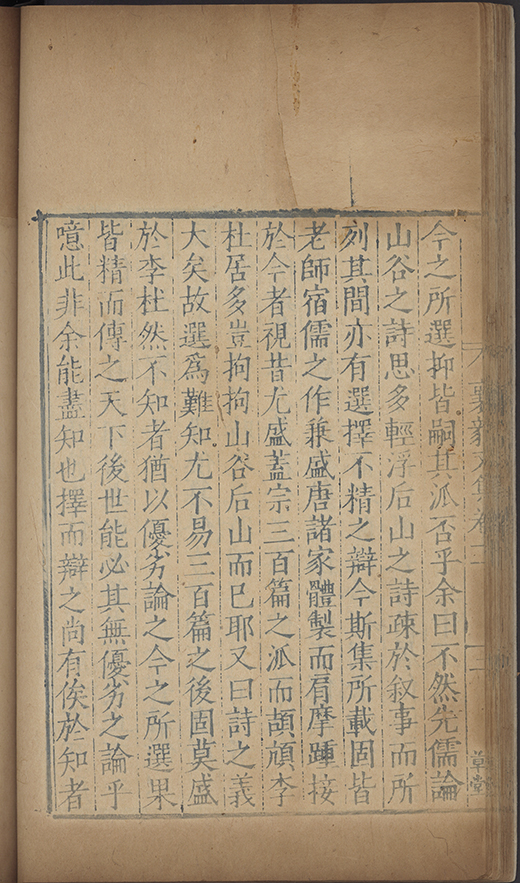 今之所選抑皆嗣其派否乎余曰不然先儒論
山谷之詩思多輕浮后山之詩疎於叙事而所
刻其間亦有選擇不精之辯今斯集所載固皆
老師宿儒之作兼盛唐諸家體製而肩摩踵接
於今者視昔尤盛蓋宗三百篇之派而頡頏李
杜居多豈拘拘山谷后山而已耶又曰詩之義
大矣故選爲難知尤不易三百篇之後固莫盛
於李杜然不知者猶以優劣論之今之所選果
皆精而傳之天下後世能必其無優劣之論乎
噫此非余能盡知也擇而辯之尚有俟於知者
草堂